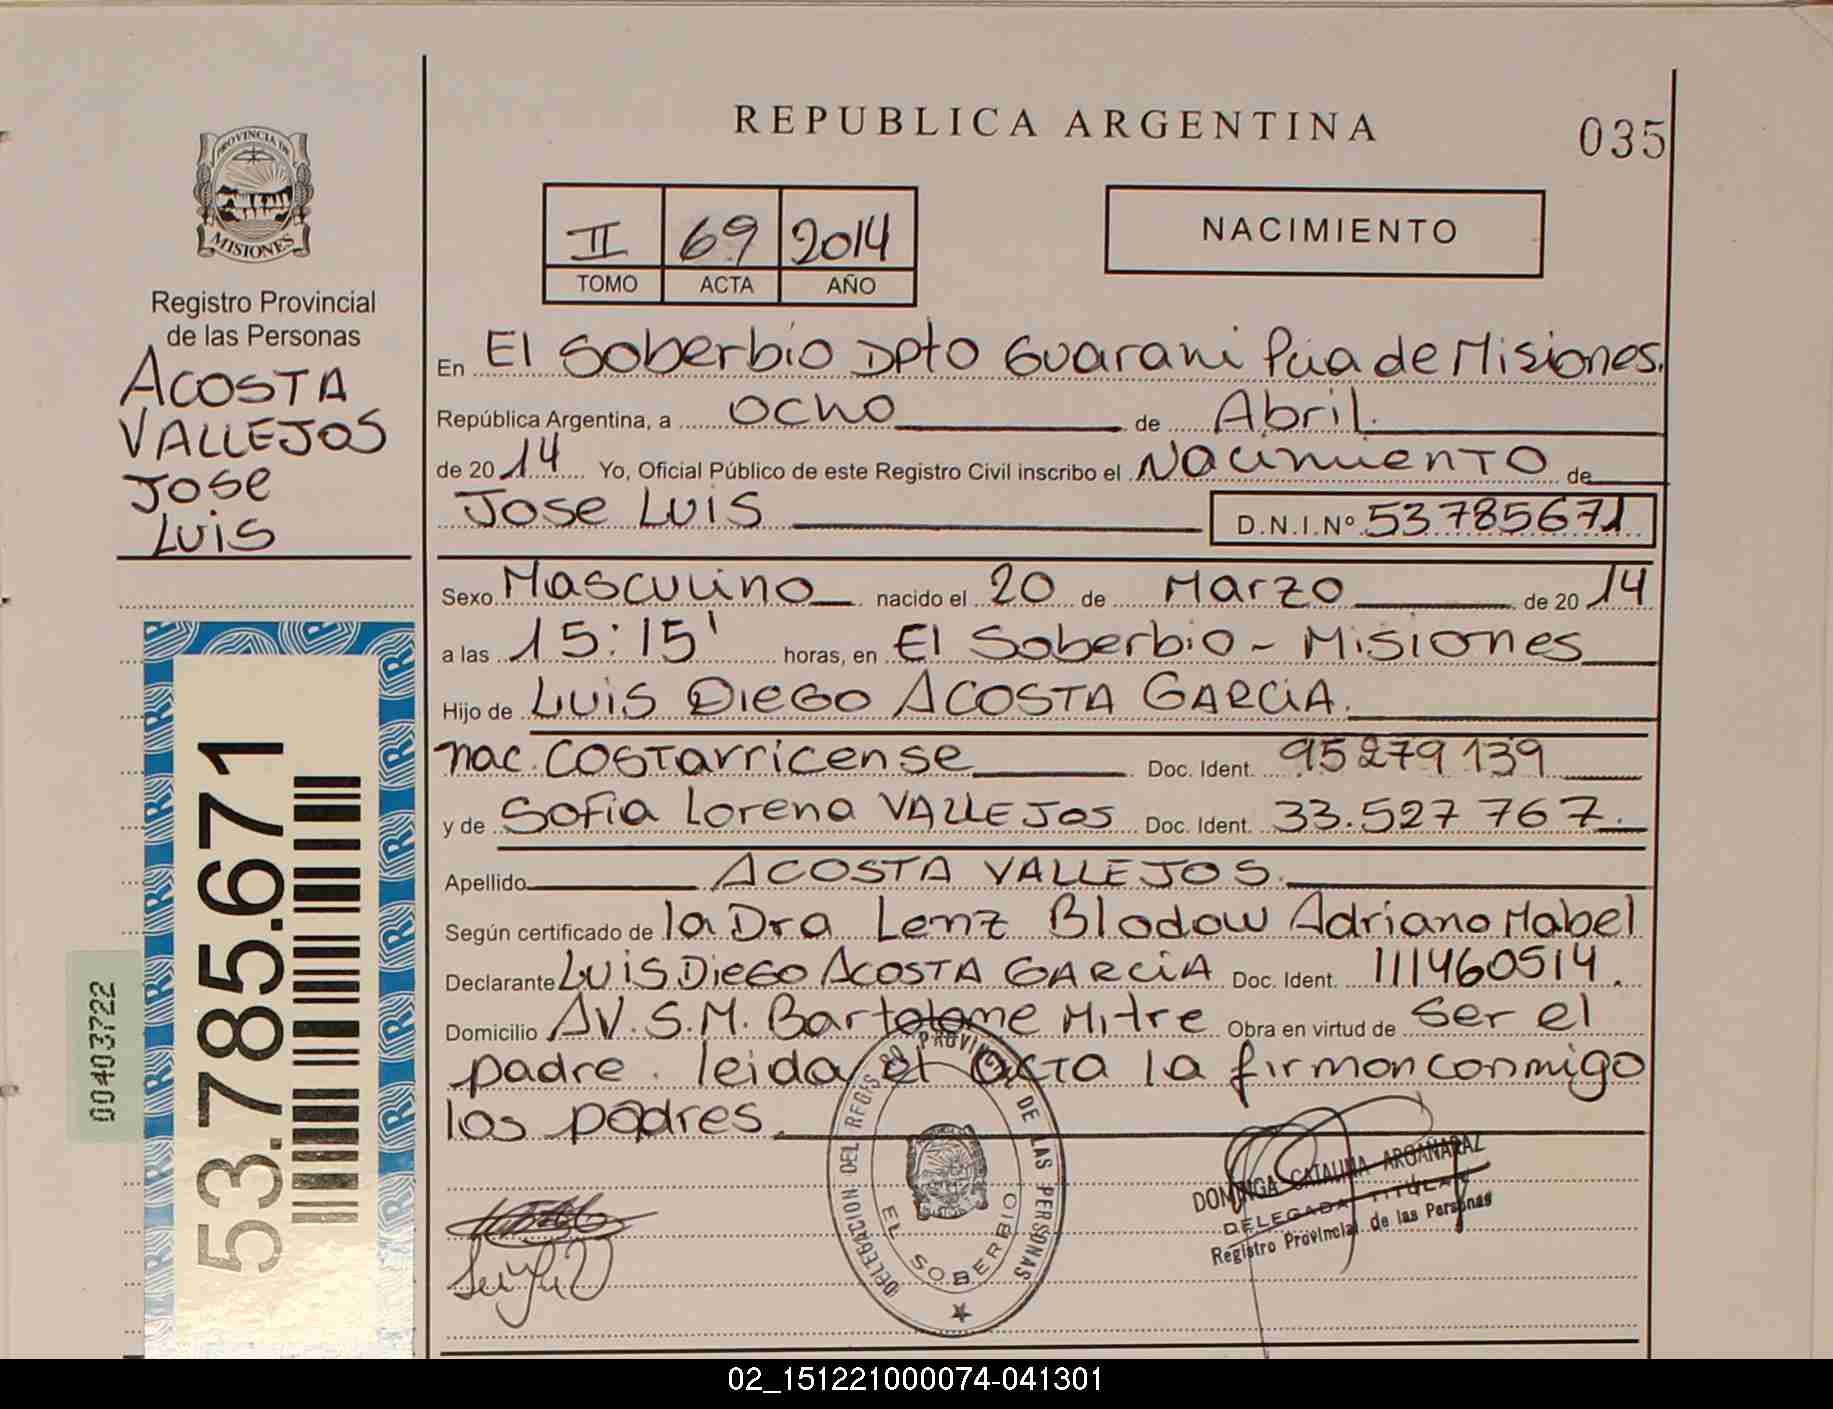 REPUBLICA ARGENTINA
035
PROVINCIA DE
MISIONES
Registro Provincial
de las Personas
ACOSTA
VALLEJOS
Jose
Luis
II 69 2014
TOMO ACTA AÑO
NACIMIENTO
En El Soberbio Dpto Guarani Pcia de Misiones.
República Argentina, a ocho de Abril.
de 2014 Yo, Oficial Público de este Registro Civil inscribo el Nacimiento de
Jose Luis D.N.I.Nº 53785671
Sexo Masculino nacido el 20 de Marzo de 2014
a las 15:15' horas, en El Soberbio - Misiones
Hijo de Luis Diego ACOSTA GARCIA.
nac. Costarricense Doc. Ident. 95279139
y de Sofia Lorena VALLEJOS Doc. Ident. 33.527 767.
Apellido ACOSTA VALLEJOS.
Según certificado de la Dra Lenz Blodow Adriano Mabel
Declarante Luis Diego ACOSTA GARCIA Doc. Ident. 111460514.
Domicilio AV. S.M. Bartolome Mitre Obra en virtud de ser el
padre. leida el acta la firman conmigo
los padres.
53.785.671
00403722
DELEGACION DEL REGISTRO PROVINCIAL DE LAS PERSONAS
EL SOBERBIO
DOMINGA CATALINA ARGAÑARAZ
DELEGADA TITULAR
Registro Provincial de las Personas
02_151221000074-041301